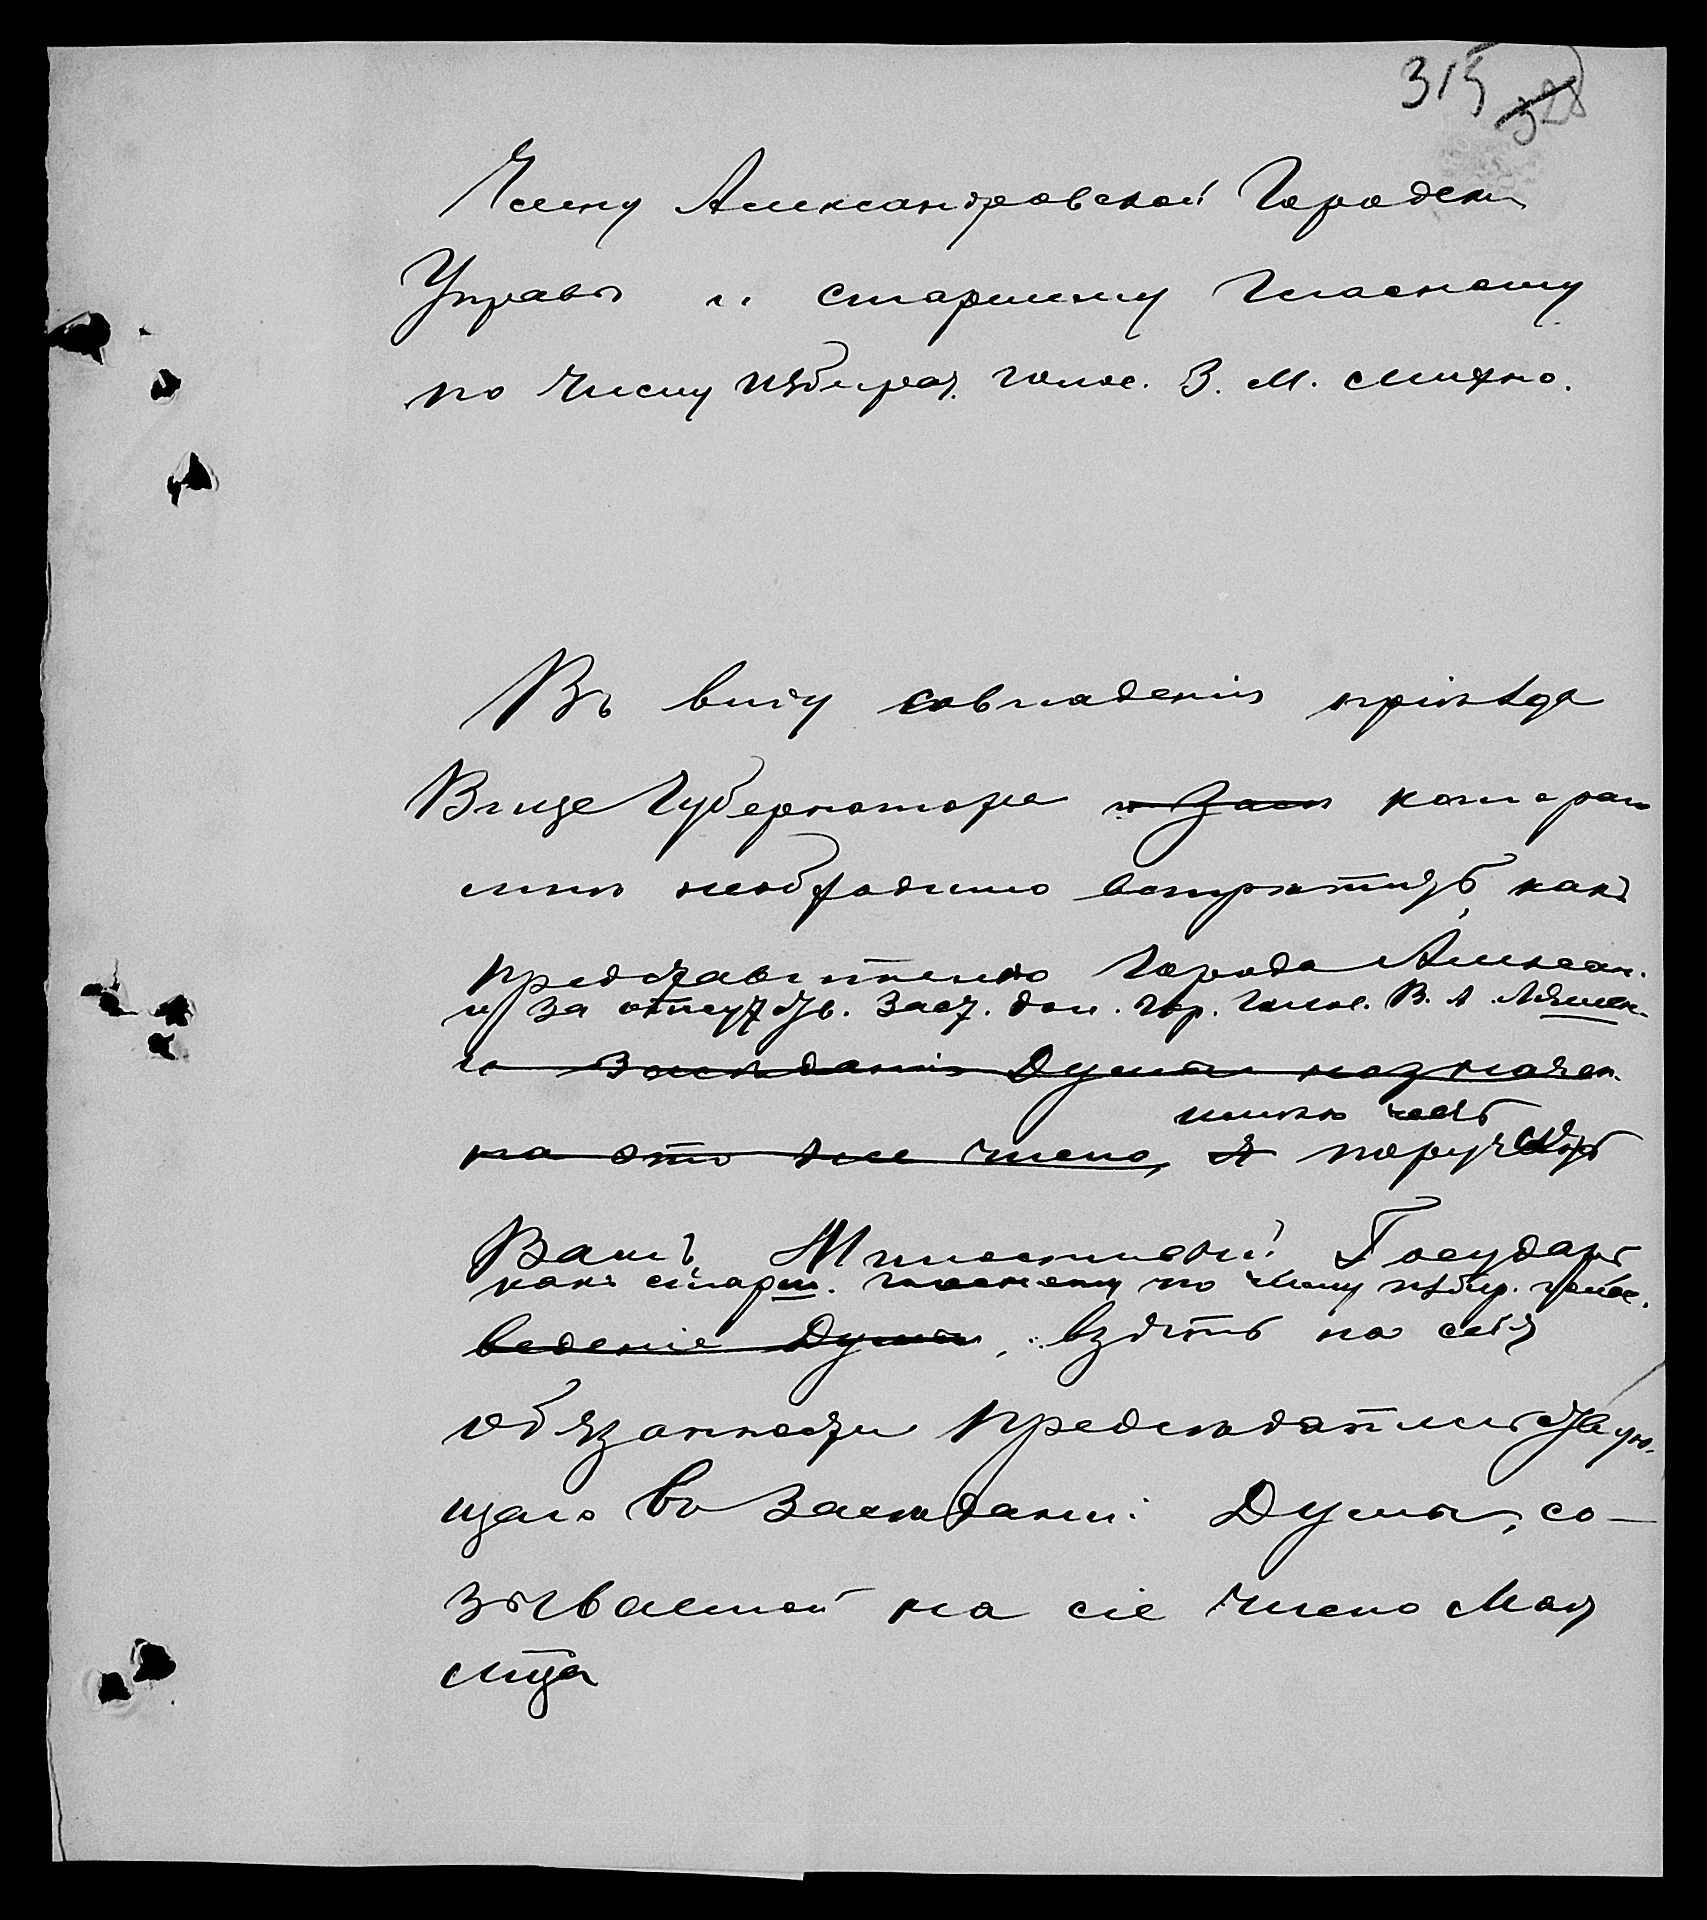 315 328
Члену Александровской Городск.
Управы и старшему Гласному
по числу избират. голос. З. М. Михно.
Въ виду совпаденія пріѣзда
Вице Губернатора и Засѣ котораго
мнѣ необходимо встрѣтить, какъ
представителю Города Алексан.
и за отсутств. Заст. дол. Гор. Голов. В. А. Ляшен.
и Засѣданія Думы назначен.
на это же число,
имѣю честь
я поручить
Вамъ, Милостивый Государь
какъ старш. гласному по числу избир. голос.
веденіе Думы, взять на себя
обязанности Предсѣдательствую-
щаго въ Засѣданіи Думы, со-
зываемой на сіе число Мая
мца